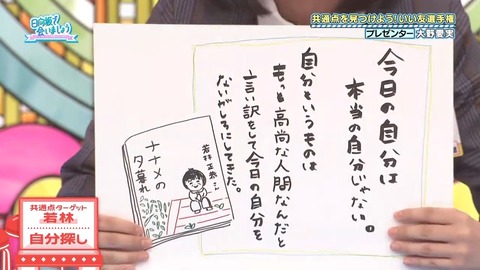 日向坂で会いましょう
共通点を見つけよう！いい友選手権
プレゼンター 大野愛実
今日の自分は
本当の自分じゃない。
自分というものは
もっと高尚な人間なんだと
言い訳をして今日の自分を
ないがしろにしてきた。
若林正恭
ナナメの
夕暮れ
共通点ターゲット
若林
自分探し